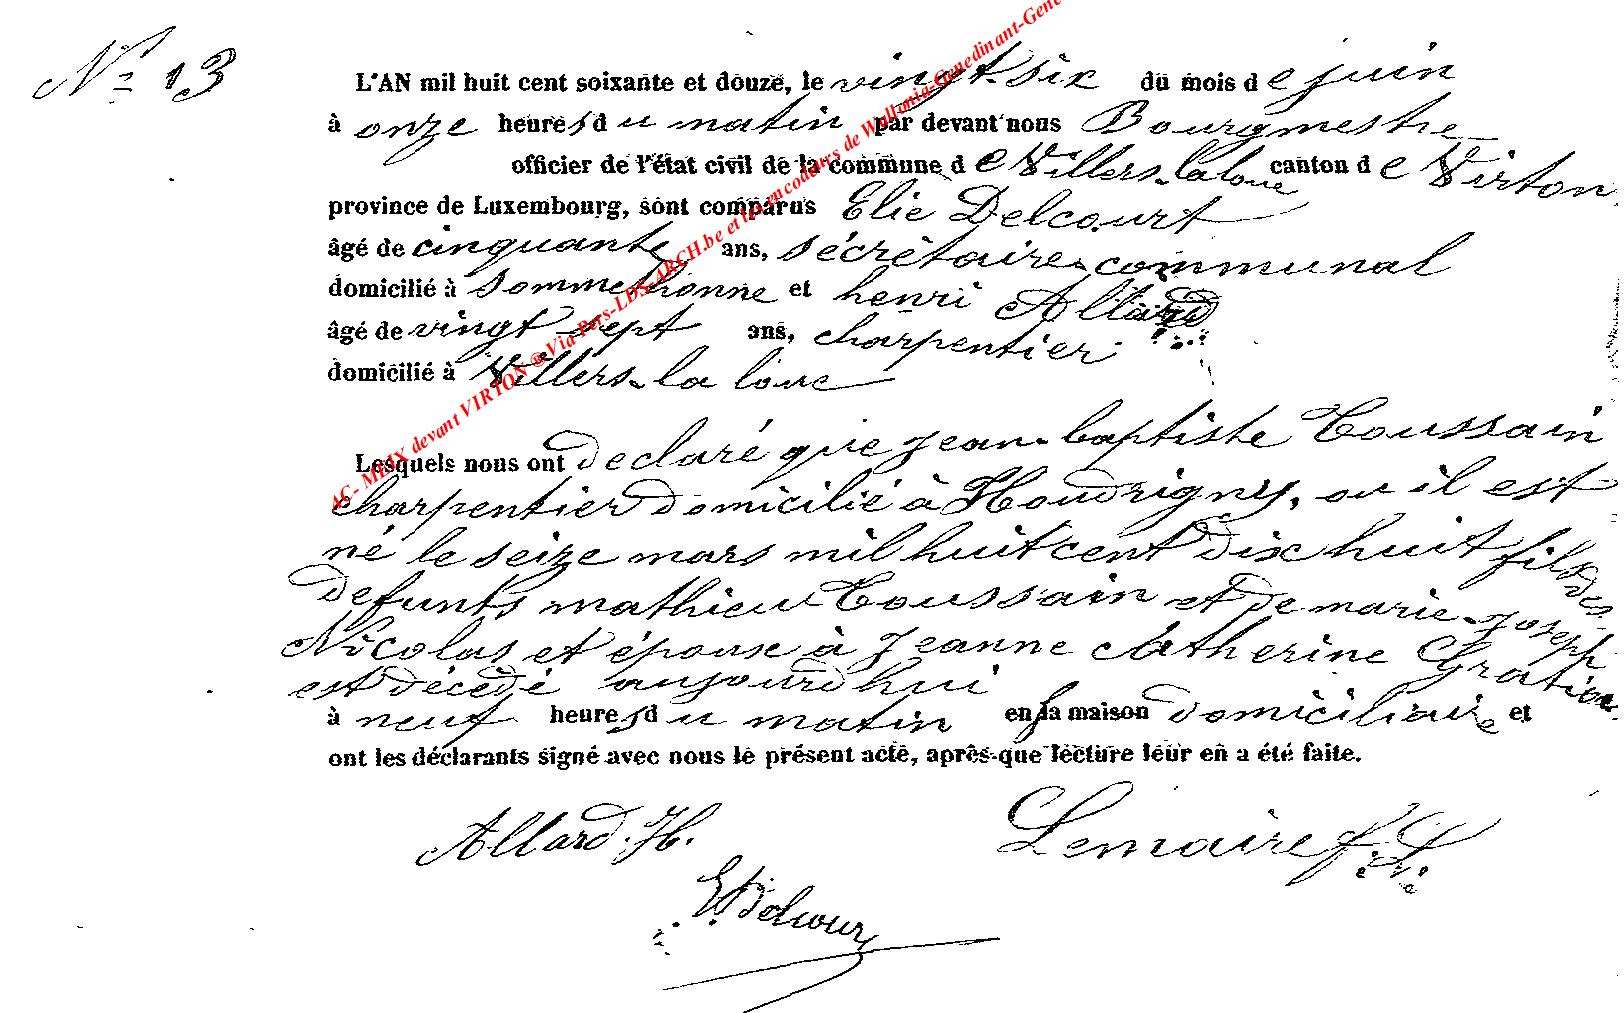 N° 13
L'AN mil huit cent soixante et douze, le vingt-six du mois de juin
à onze heures du matin par devant nous Bourgmestre
officier de l'état civil de la commune de Villers-la loue canton de Virton
province de Luxembourg, sont comparus Elie Delcourt
âgé de cinquante ans, sécrètaire-communal
domicilié à Sommethonne et henri Allard
âgé de vingt-sept ans, charpentier
domicilié à Villers-la loue
Lesquels nous ont declaré que jean-baptiste Toussain
charpentier domicilié à Houdrigny, ou il est
né le seize mars mil huit cent dix huit fils des
defunts mathieu Toussain et de marie-joseph
Nicolas et époux à jeanne Catherine Gration
est décédé aujourd hui
à neuf heures du matin en sa maison domiciliaire et
ont les déclarants signé avec nous le présent acte, après que lecture leur en a été faite.
Allard. H.
Lemaire f.
E Delcour
AC- MEIX devant VIRTON @ Via Pers-LDS-ARCH.be et les encodeurs de Wallonia-Genedinant-Gene